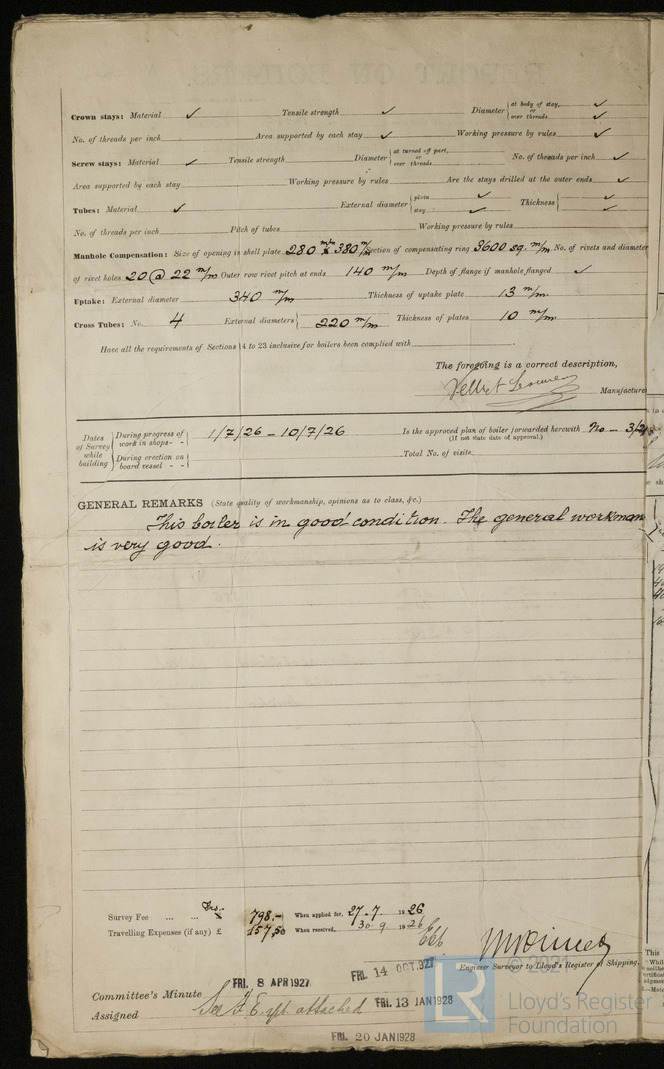 Crown stays: Material ✓ Tensile strength ✓ Diameter { at body of stay, ✓ or over threads ✓
No. of threads per inch Area supported by each stay ✓ Working pressure by rules ✓
Screw stays: Material ✓ Tensile strength Diameter { at turned off part, or over threads No. of threads per inch ✓
Area supported by each stay Working pressure by rules Are the stays drilled at the outer ends ✓
Tubes: Material ✓ External diameter { plain ✓ stay ✓ Thickness { ✓ ✓
No. of threads per inch Pitch of tubes Working pressure by rules
Manhole Compensation: Size of opening in shell plate 280 m/m x 380 m/m Section of compensating ring 3600 sq. m/m No. of rivets and diameter
of rivet holes 20 @ 22 m/m Outer row rivet pitch at ends 140 m/m Depth of flange if manhole flanged ✓
Uptake: External diameter 340 m/m Thickness of uptake plate 13 m/m.
Cross Tubes: No. 4 External diameters { 220 m/m Thickness of plates 10 m/m.
Have all the requirements of Sections 14 to 23 inclusive for boilers been complied with
The foregoing is a correct description,
Manufacturer
Dates of Survey while building { During progress of work in shops - - } 1/7/26 – 10/7/26 Is the approved plan of boiler forwarded herewith No –
(If not state date of approval.)
{ During erection on board vessel - - } Total No. of visits
GENERAL REMARKS (State quality of workmanship, opinions as to class, &c.)
This boiler is in good condition. The general workman
is very good.
Survey Fee ... ... 798.- When applied for, 27.7. 1926
Travelling Expenses (if any) £ 157,50 When received, 30.9 1926
Engineer Surveyor to Lloyd's Register of Shipping.
© 2021
Lloyd's Register
Foundation
LR
Committee's Minute FRI. 8 APR 1927 FRI. 14 OCT. 927
Assigned See F.E. rpt. attached FRI. 13 JAN 1928
FRI. 20 JAN 1928